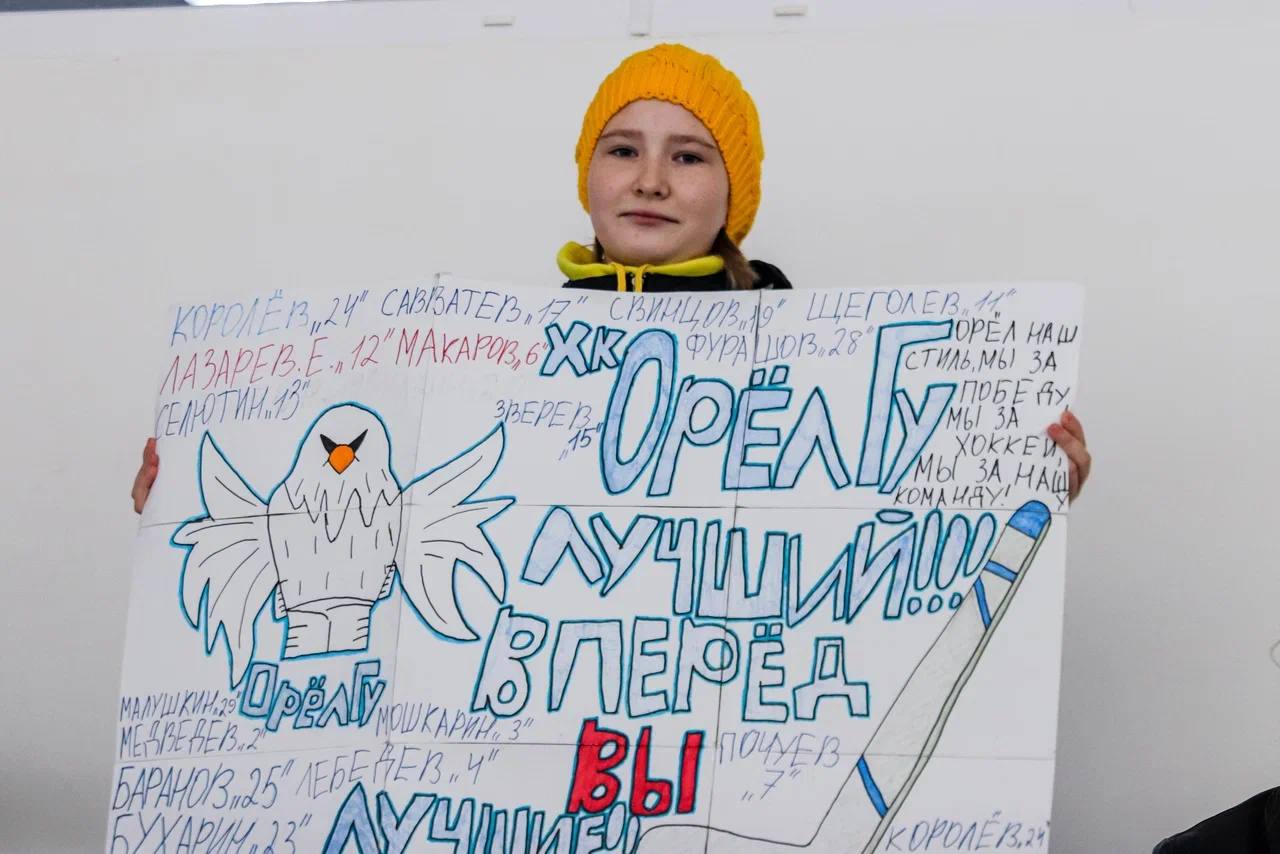 КОРОЛЁВ„24" САВВАТЕВ„17" СВИНЦОВ„19" ЩЕГОЛЕВ„11"
ЛАЗАРЕВ.Е.„12" МАКАРОВ„6" ФУРАШОВ„28"
СЕЛЮТИН„13"
ЗВЕРЕВ
„15"
ХК ОРЁЛ ГУ
ОРЁЛ НАШ
СТИЛЬ, МЫ ЗА
ПОБЕДУ,
МЫ ЗА
ХОККЕЙ,
МЫ ЗА НАШУ
КОМАНДУ!
ЛУЧШИЙ!!!
ВПЕРЁД
ОРЁЛ ГУ
МАЛУШКИН„29"
МЕДВЕДЕВ„2"
МОШКАРИН„3"
БАРАНОВ„25" ЛЕБЕДЕВ„4"
БУХАРИН„23"
ВЫ
ЛУЧШИЕ!!
ПОЧУЕВ
„7"
КОРОЛЁВ„24"